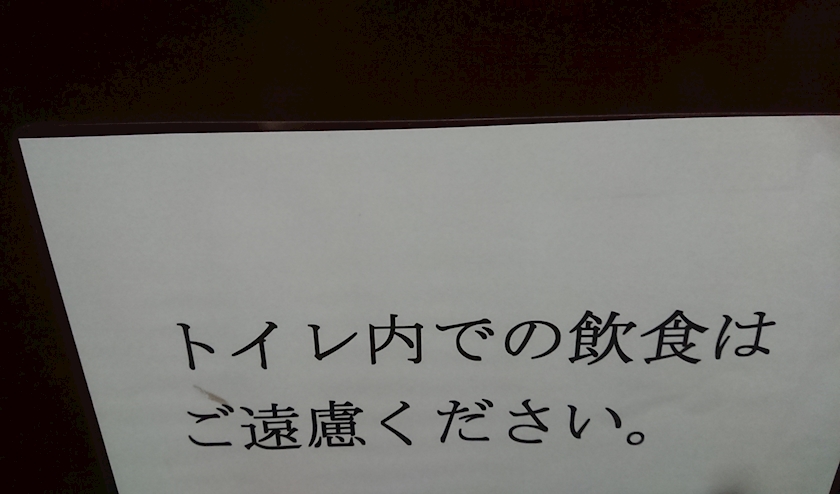 トイレ内での飲食は
ご遠慮ください。